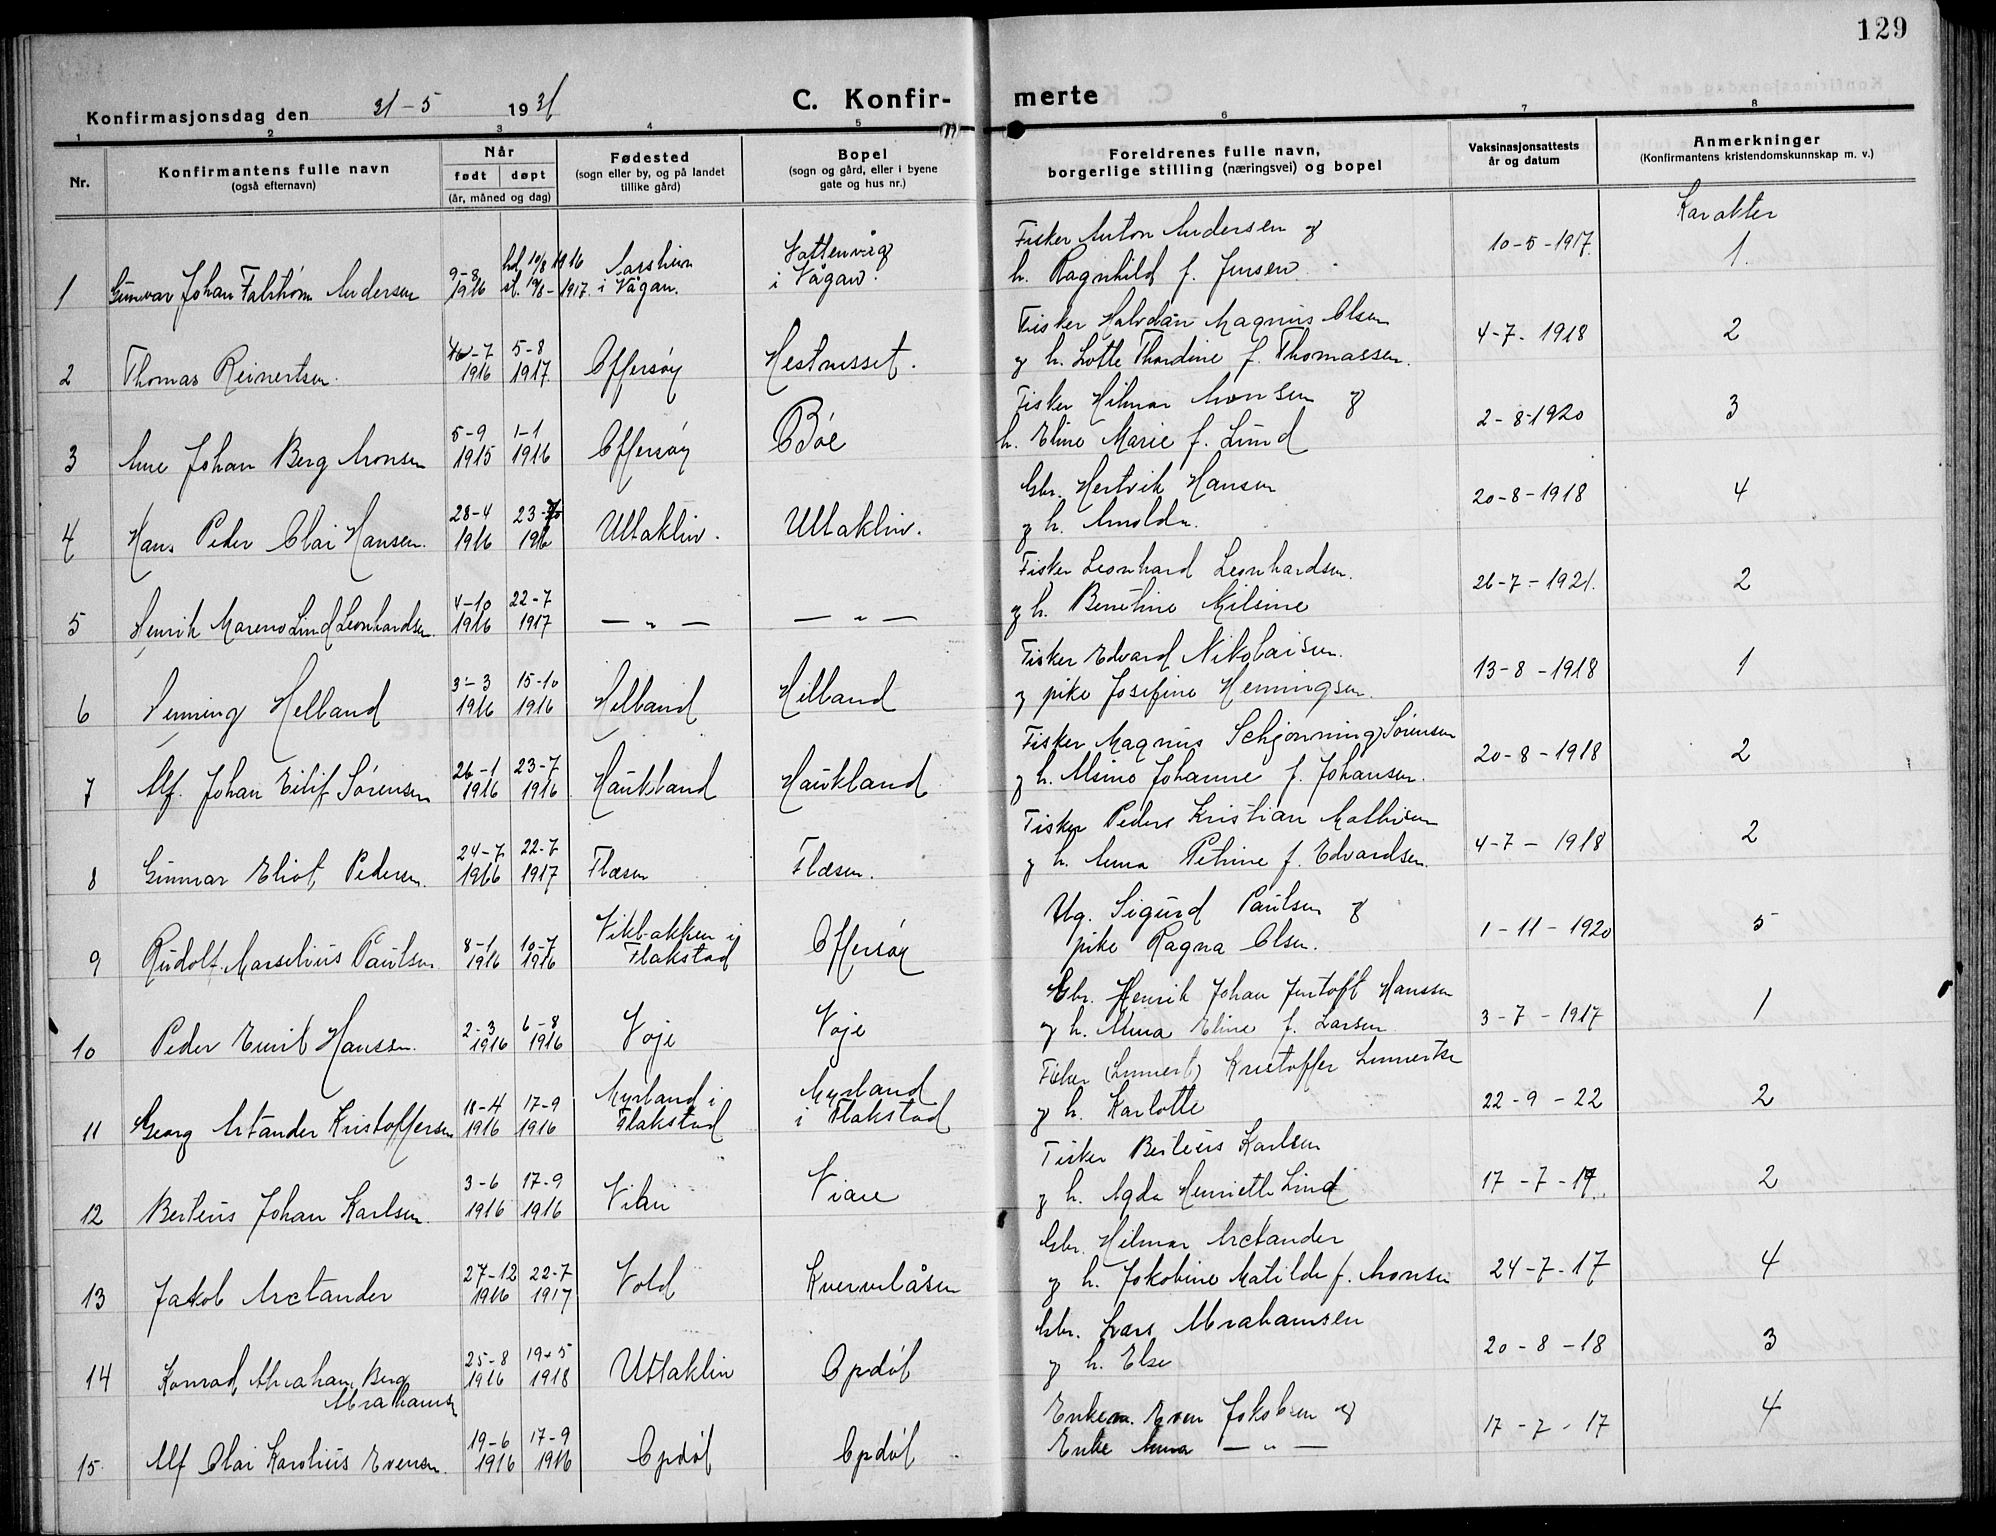 129
Konfirmasjonsdag den 31-5 1931
C. Konfir-
merte
1 2 3 4 5 6 7 8
Nr.
Konfirmantens fulle navn
(også efternavn)
Når
født døpt
(år, måned og dag)
Fødested
(sogn eller by, og på landet
tillike gård)
Bopel
(sogn og gård, eller i byene
gate og hus nr.)
Foreldrenes fulle navn,
borgerlige stilling (næringsvei) og bopel
Vaksinasjonsattests
år og datum
Anmerkninger
(Konfirmantens kristendomskunnskap m. v.)
Karakter
1 Gunvar Johan Andersen 9-8 1916 hd. 10/8 1916 st. 1917. i Vågan. i Vågan.
Fisker Anton Andersen og
h. Ragnhild f. Jensen. 10-5-1917. 1.
2 Thomas Reinertsen. 7 1916 5-8 1917 Offersøy Hestnesset.
Fisker Halvdan Magnus Olsen
og h. Lotte Thordine f. Thomassen. 4-7-1918 2
3 Arne Johan Berg Aronsen 5-9 1915 1-1 1916 Offersøy Bøe
Fisker Hilmar Aronsen og
h. Eline Marie f. Lund 2-8-1920 3
4 Hans Peder Olai Hansen. 28-4 1916 23- 1916 Uttakliv. Uttakliv.
Gbr. Hertvik Hansen
og h. Arolda. 20-8-1918 4
5 Henrik Mareno Lind Leonhardsen. 4-10 1916 22-7 1917 — " — — " —
Fisker Leonhard Leonhardsen.
og h. Benetine Nilsine 26-7-1921. 2
6 Henning Helland 3-3 1916 15-10 1916 Helland Helland
Fisker Edvard Nikolaisen.
og pike Josefine Henningsen. 13-8-1918 1
7 Alf Johan Eilif Sørensen 26-1 1916 23-7 1916 Haukland Haukland
Fisker Magnus Schjønning Sørensen
og h. Alsine Johanne f. Johansen. 20-8-1918 2
8 Gunnar Eliot Pedersen. 24-7 1916 22-7 1917 Flæsen Flæsen.
Fisker Peder Kristian Mathisen
og h. Anna Petrine f. Edvardsen. 4-7-1918 2
9 Rudolf Marselius Paulsen 8-1 1916 10-7 1916 Vikbakken i Flakstad Offersøy
Ug. Sigurd Paulsen og
pike Ragna Olsen. 1-11-1920 5
10 Peder Emil Hanssen. 2-3 1916 6-8 1916 Voje Voje
Gbr. Henrik Johan Jentoft Hanssen
og h. Anna Eline f. Larsen 3-7-1917 1
11 Georg Artander Kristoffersen 18-4 1916 17-9 1916 Myrland i Flakstad Myrland i Flakstad
Fisker (Lennert) Kristoffer Lennertsen
og h. Karlotte 22-9-22 2
12 Berteus Johan Karlsen. 3-6 1916 17-9 1916
Fisker Berteus Karlsen
og h. Agda Henriette Lind 17-7-17. 2
13 Jakob Arctander 27-12 1916 22-7 1917 Vold Kvervelåsen
Gbr. Hilmar Arctander
og h. Jokobine Matilde f. Aronsen 24-7-17 4
14 Konrad Abraham Berg Abrahamsen 25-8 1916 19-5 1918 Uttakliv Opdøl
Gbr. Lars Abrahamsen
og h. Else 20-8-18 3
15. Alf Olai Karolius Evensen. 19-6 1916 17-9 1916 Opdøl Opdøl
Enkem. Even Jokobsen og
Enke Anna — " — 17-7-17 4